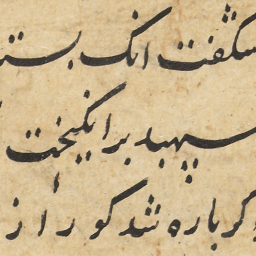 شگفت انک بست
سپهبد برانکیخت
کرباره شد کو را ز